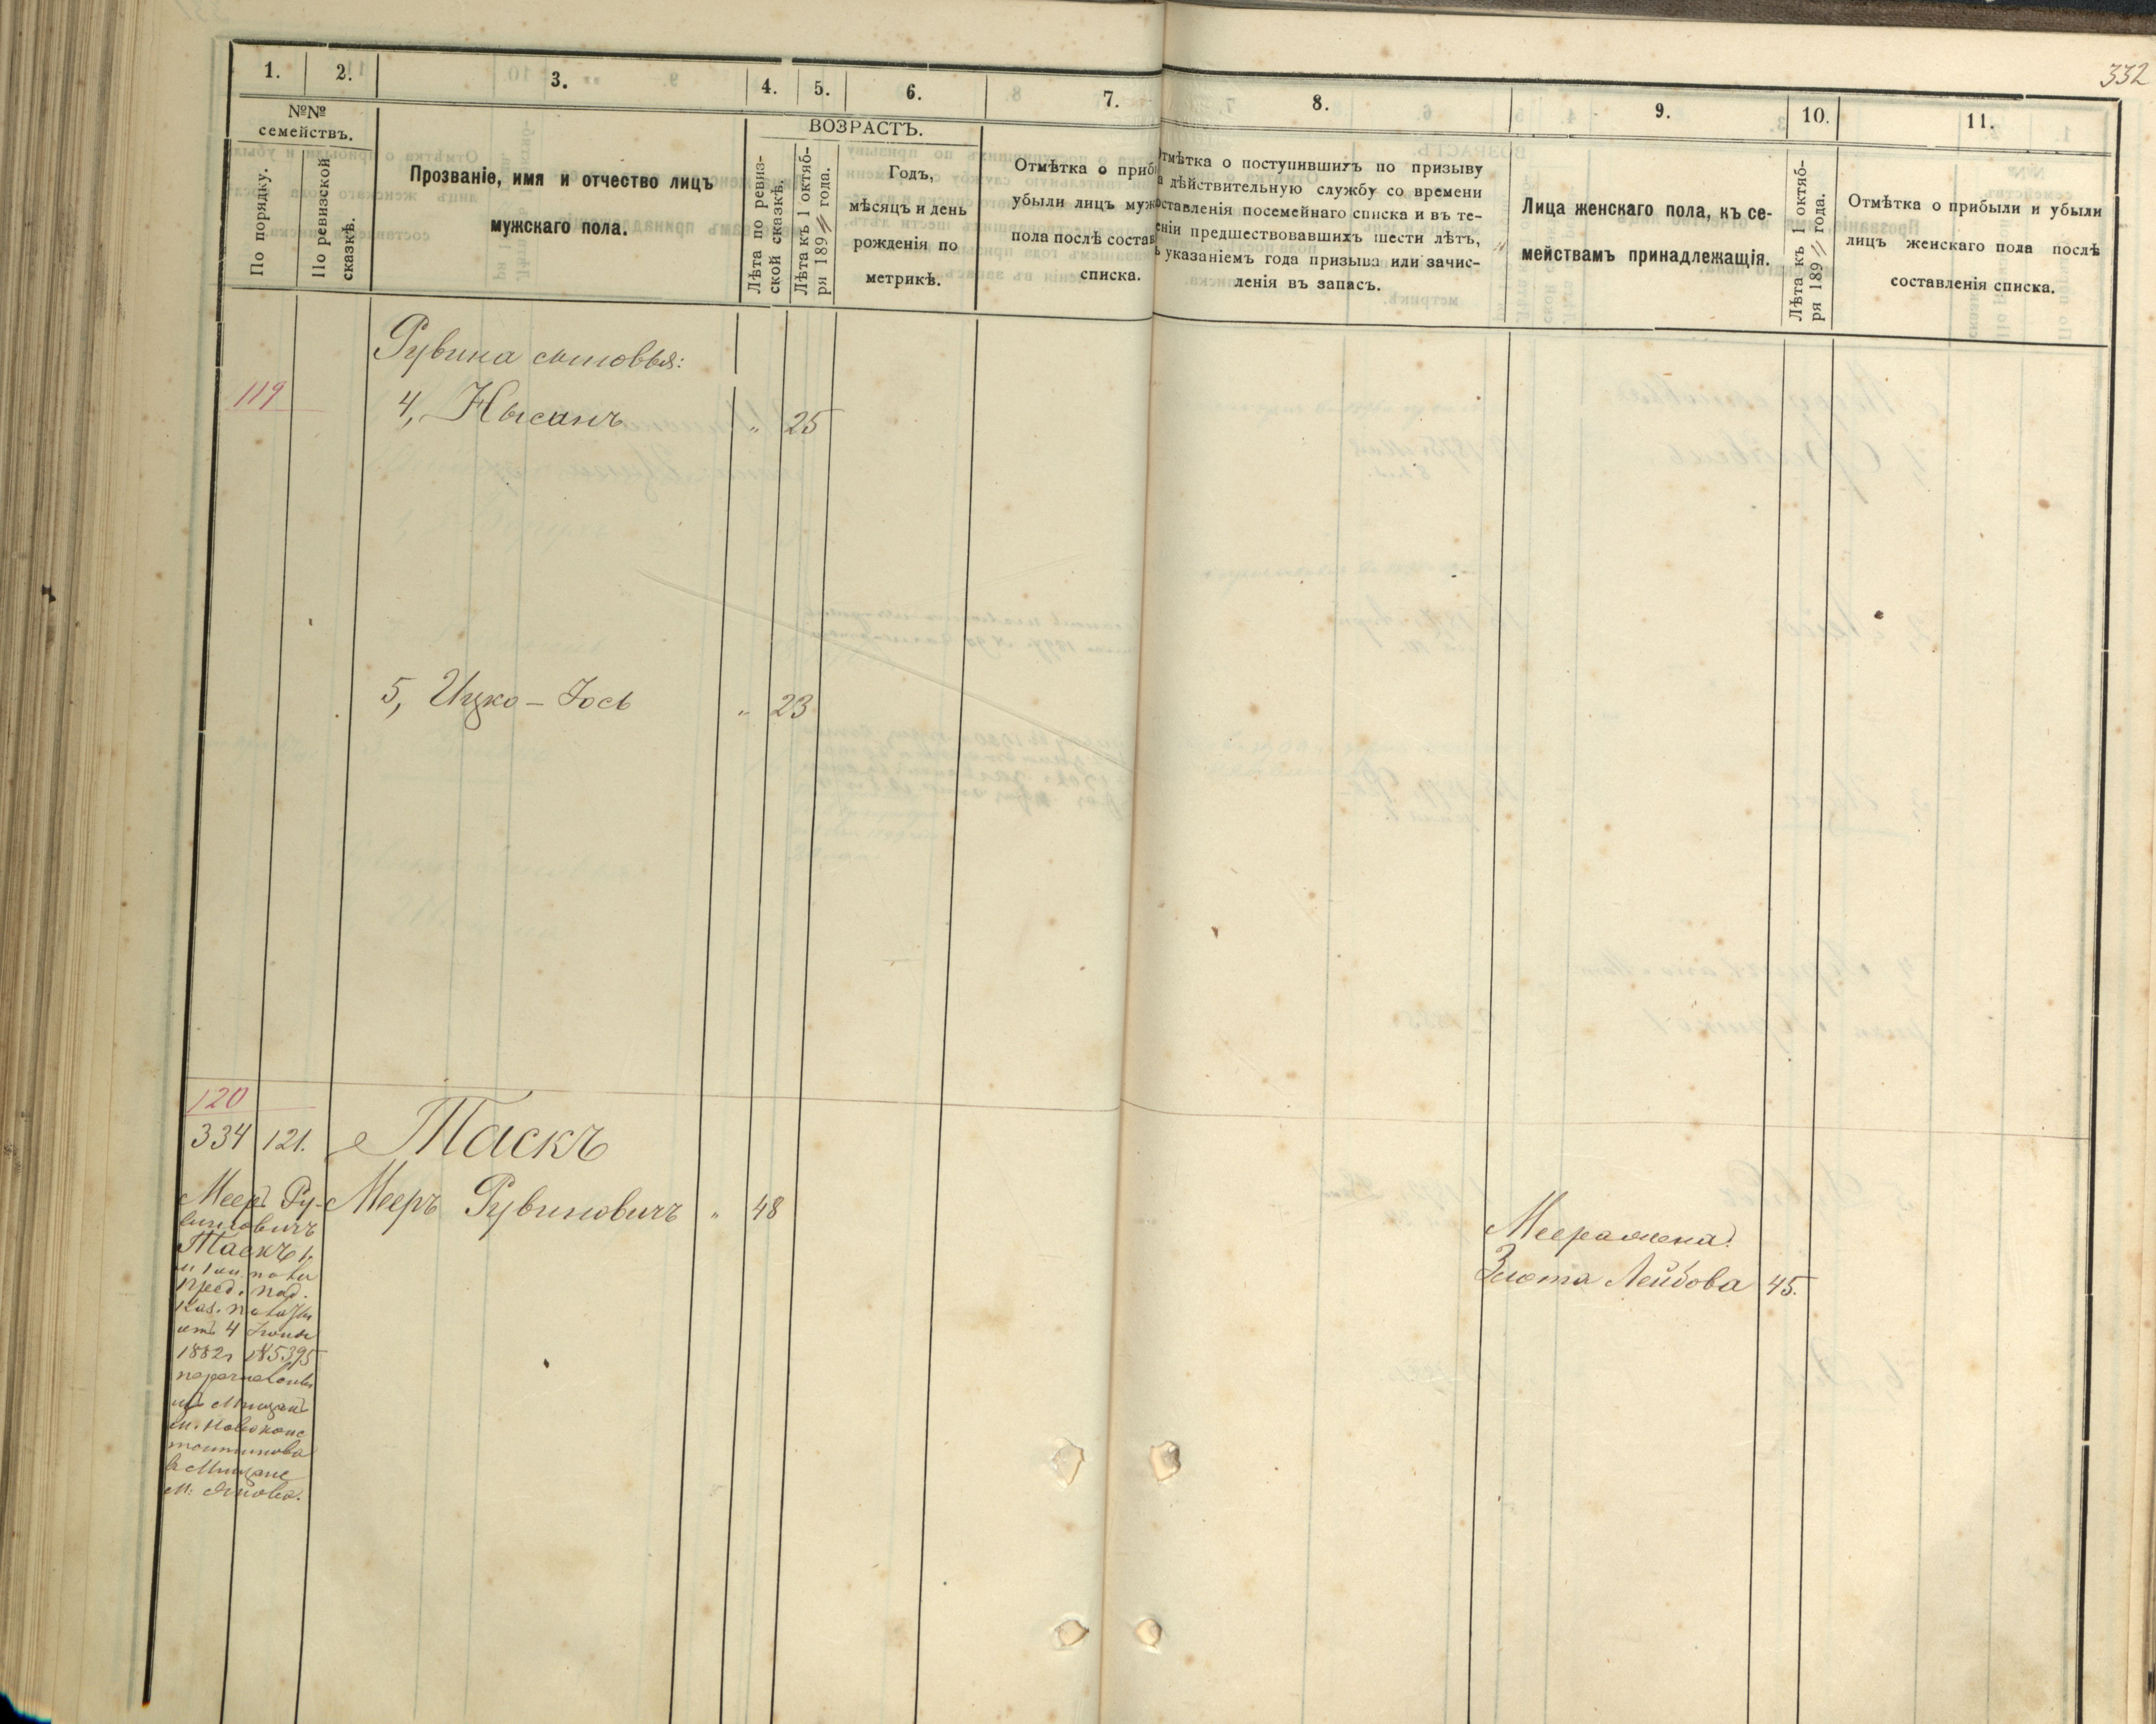 332
1. 2. 3. 4. 5. 6. 7. 8. 9. 10. 11.
№№
семействъ.
По порядку.
По ревизской
сказкѣ.
Прозваніе, имя и отчество лицъ
мужскаго пола.
ВОЗРАСТЪ.
Лѣта по ревиз-
ской сказкѣ.
Лѣта къ 1 октяб-
ря 189 года.
Годъ,
мѣсяцъ и день
рожденія по
метрикѣ.
Отмѣтка о приб
убыли лицъ муж
пола послѣ состав
списка.
тмѣтка о поступившихъ по призыву
а дѣйствительную службу со времени
оставленія посемейнаго списка и въ те-
еніи предшествовавшихъ шести лѣтъ,
ъ указаніемъ года призыва или зачис-
ленія въ запасъ.
Лица женскаго пола, къ се-
мействамъ принадлежащія.
Лѣта къ 1 октяб-
ря 189 года.
Отмѣтка о прибыли и убыли
лицъ женскаго пола послѣ
составленія списка.
Рувина сыновья:
119 4, Нысанъ " 25
5, Ицко-Іось " 23
120
334 121. Таскъ
Мееръ Рувиновичъ " 48
Меера жена:
Злота Лейбова 45.
Мееръ Ру-
виновичъ
Таскъ
пред. под.
Каз. палаты
отъ 4 Іюня
1882 г. №5395
перечисленъ
изъ Мищанъ
м. Новоконс
тантинова
в Мищане
м. Янова.